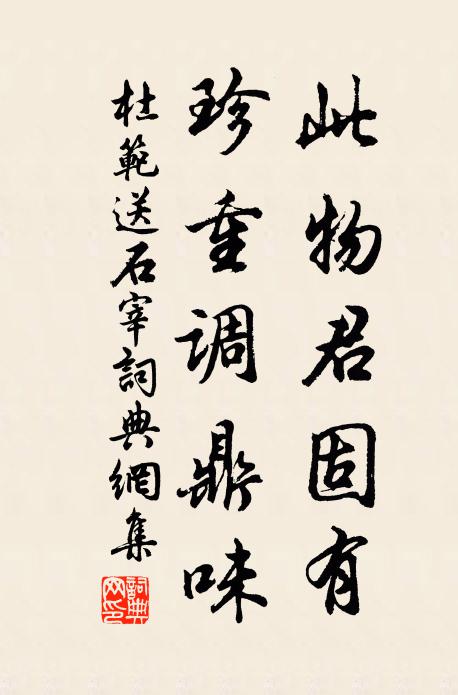 此物君固有
珍重调鼎味
杜範送石宰詞典網集
詞典网印